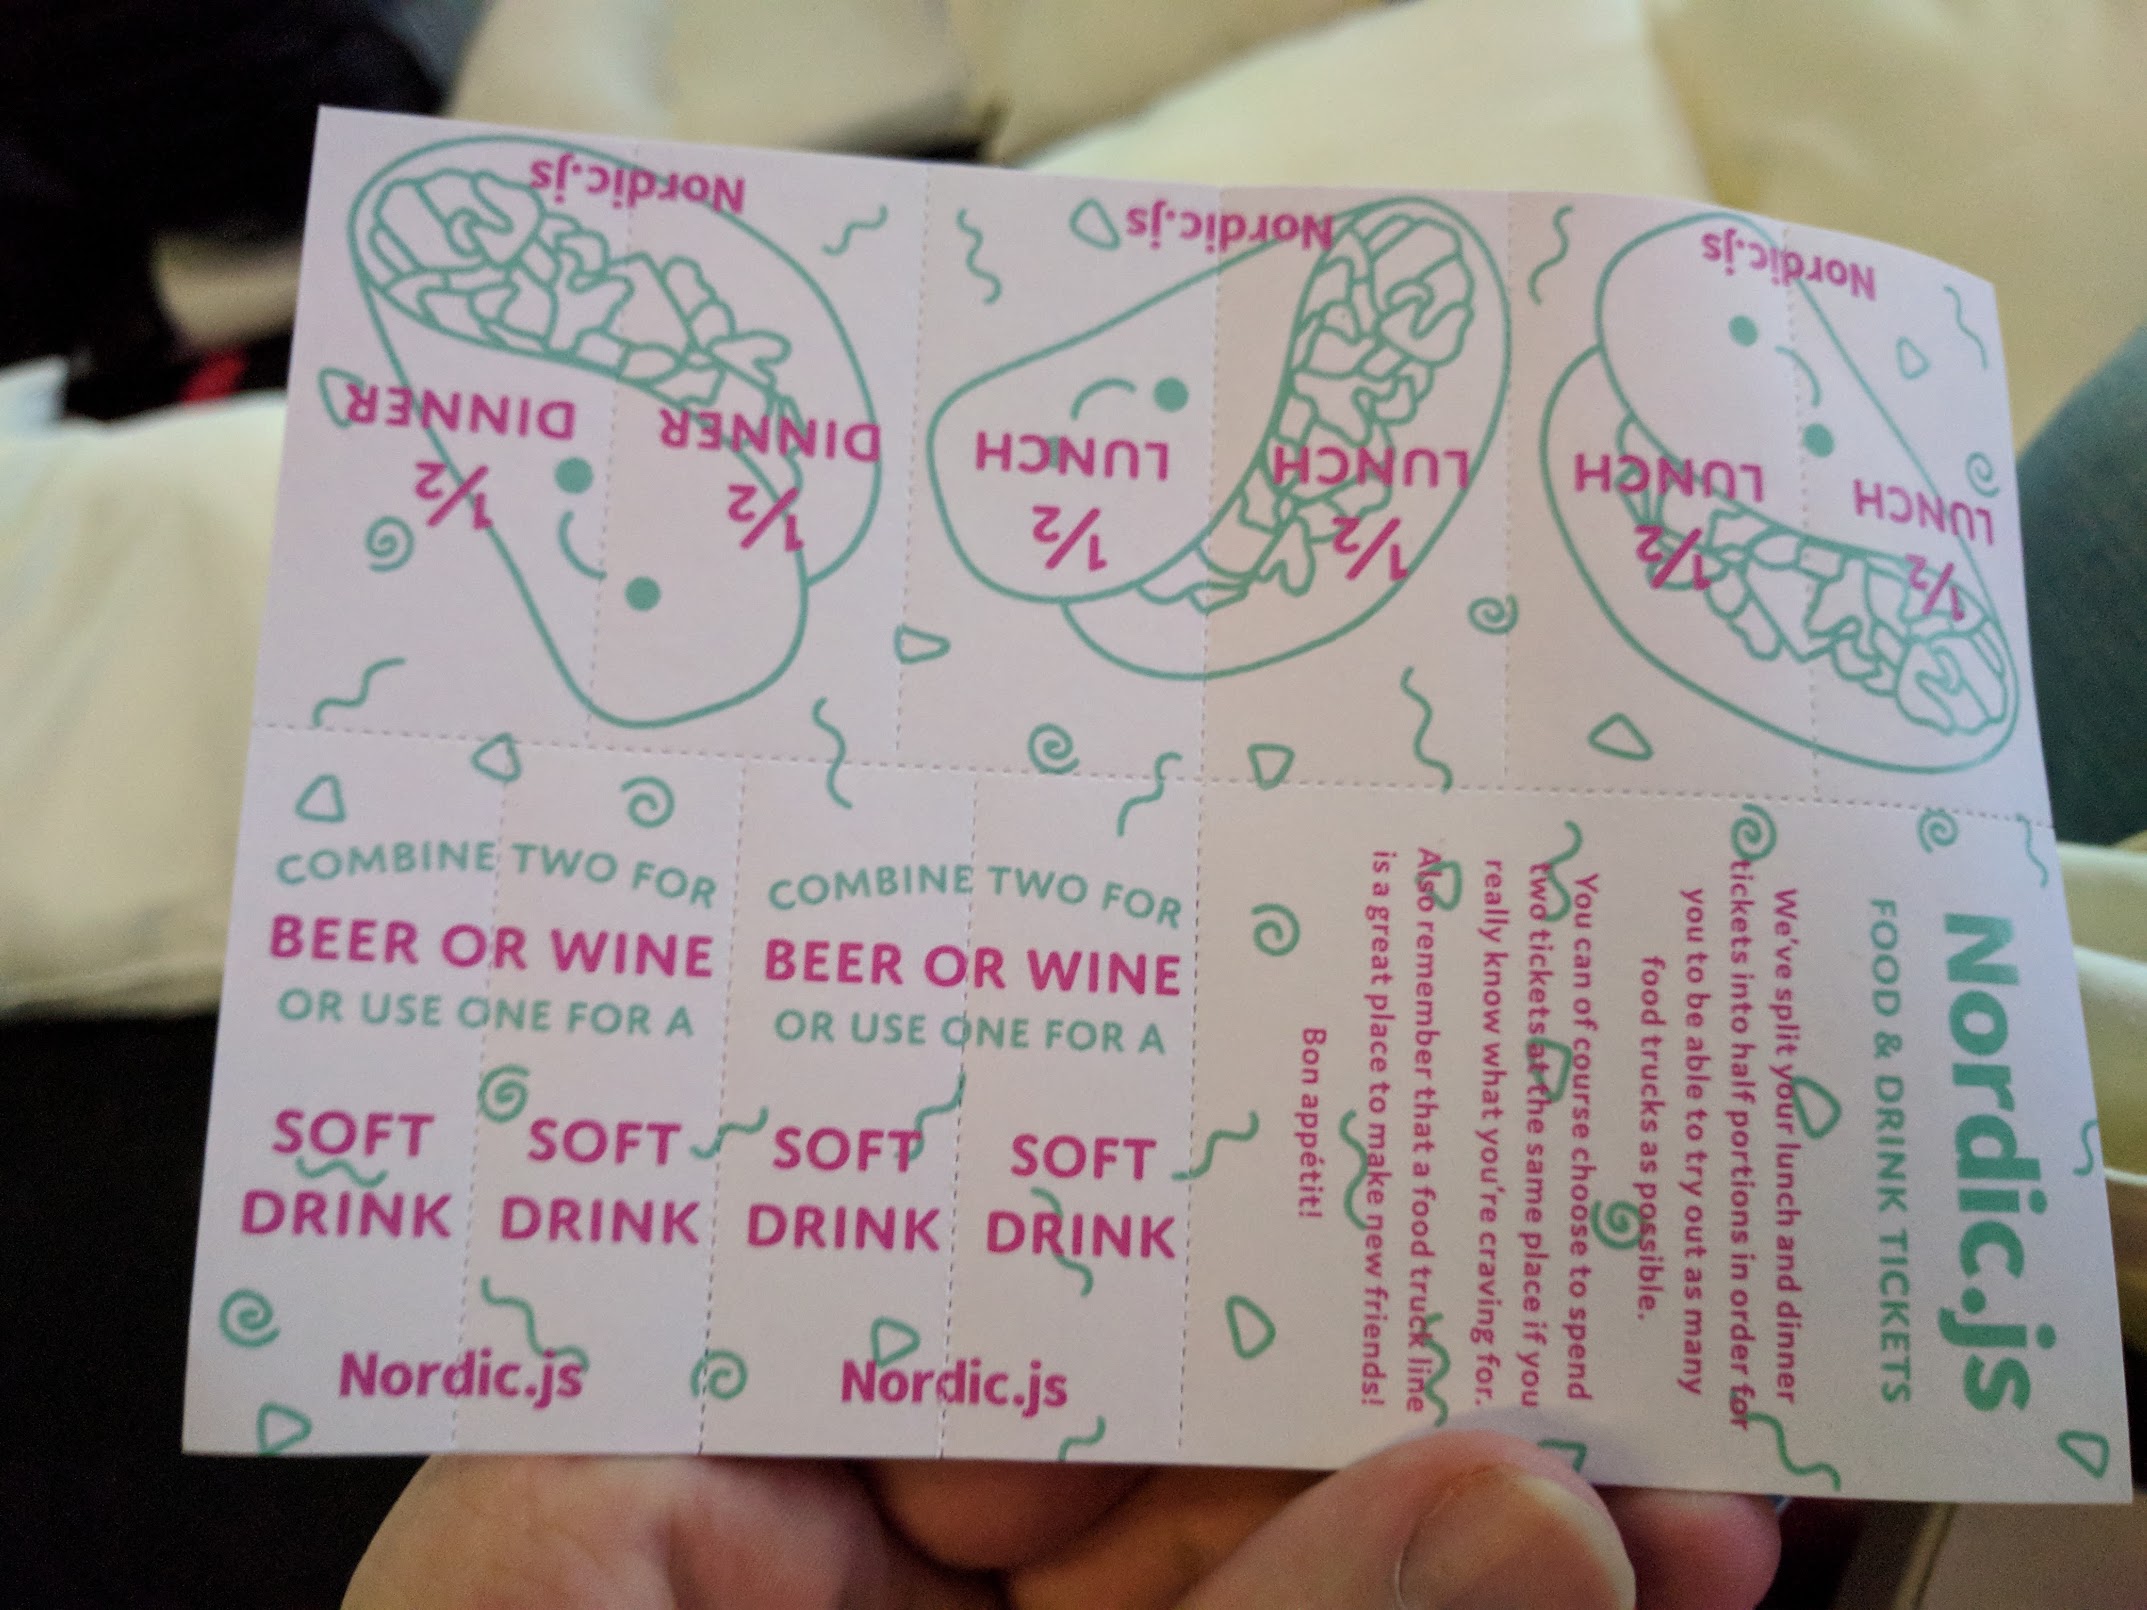 Nordic.js
Nordic.js
Nordic.js
DINNER
DINNER
LUNCH
LUNCH
LUNCH
LUNCH
1/2
1/2
1/2
1/2
1/2
1/2
COMBINE TWO FOR
BEER OR WINE
OR USE ONE FOR A
SOFT
DRINK
SOFT
DRINK
Nordic.js
COMBINE TWO FOR
BEER OR WINE
OR USE ONE FOR A
SOFT
DRINK
SOFT
DRINK
Nordic.js
Nordic.js
FOOD & DRINK TICKETS
We've split your lunch and dinner
tickets into half portions in order for
you to be able to try out as many
food trucks as possible.
You can of course choose to spend
two tickets at the same place if you
really know what you're craving for.
Also remember that a food truck line
is a great place to make new friends!
Bon appétit!